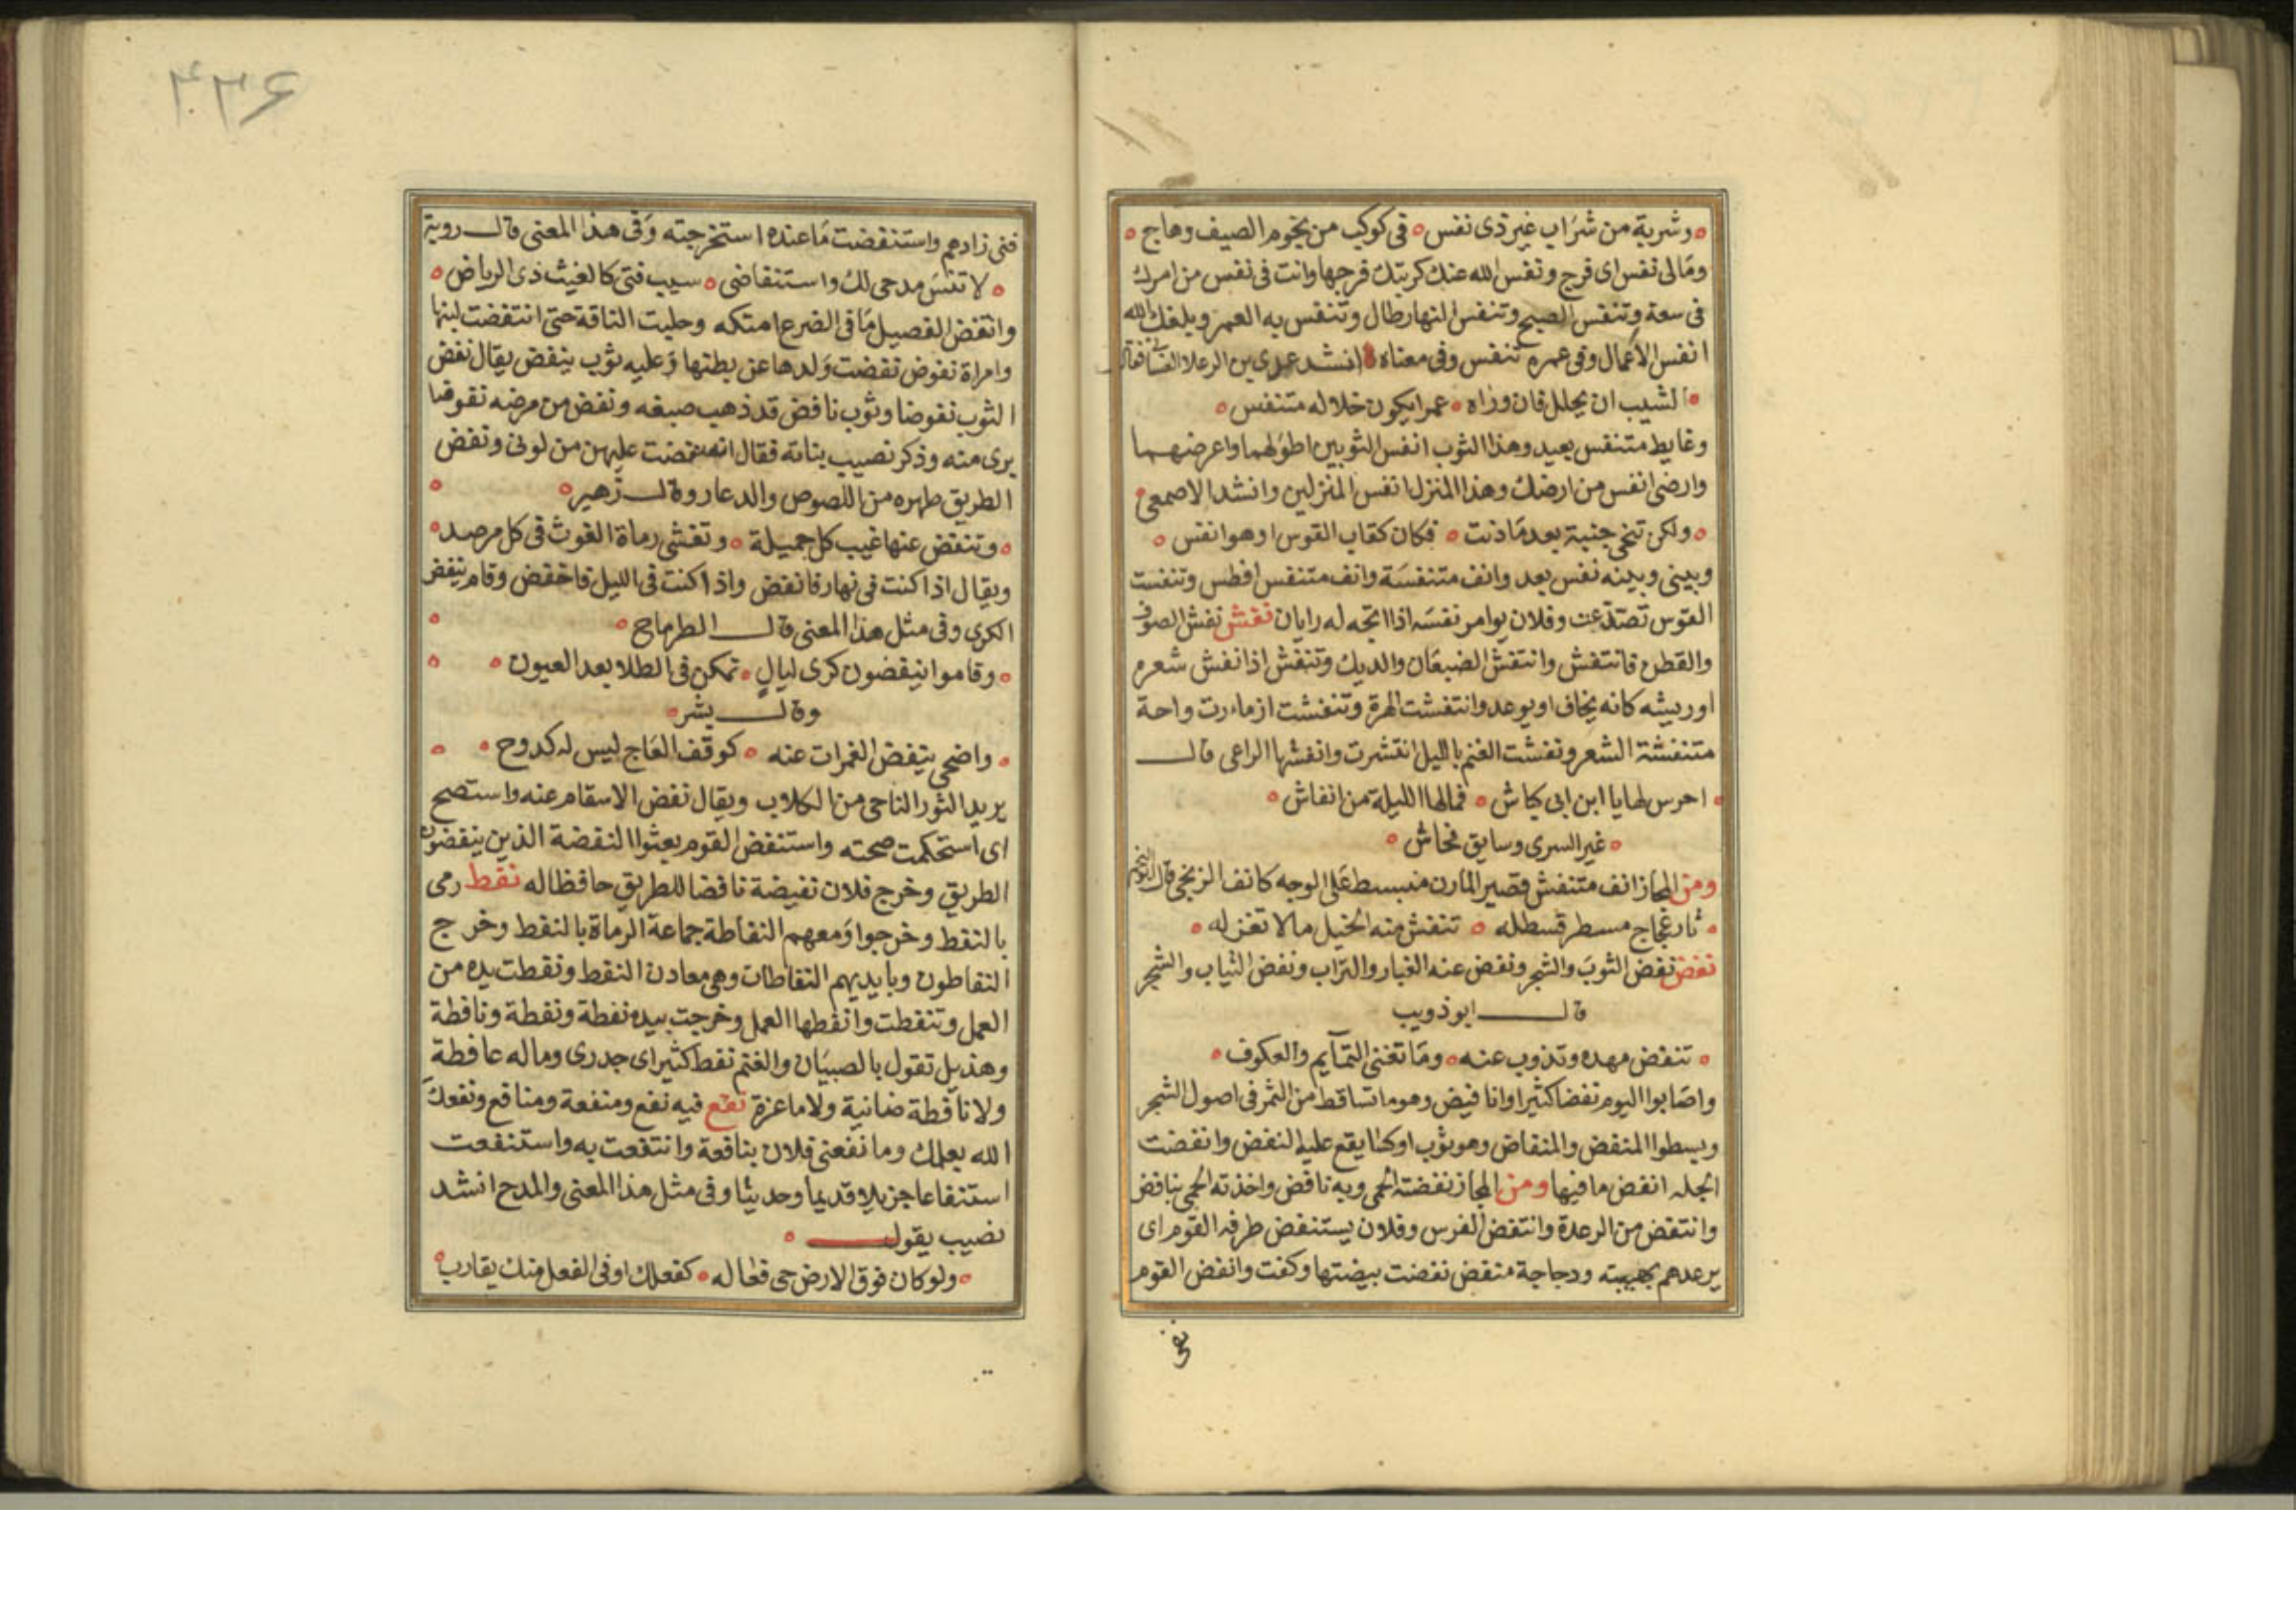 وشربة من شراب غير ذى نفس فى كوكب من نجوم الصيف وهاج
ومالى نفس اى فرج ونفس الله عنك كربتك فرجها وانت فى نفس من امرك
فى سعة وتنفس الصبح وتنفس النهار طال وتنفس به العمر وبلغك الله
انفس الاعمال وفى عمره تنفس وفى معناه انشد عدى بن الرعلا الغسانى فقال
الشيب ان يحلل فان وراه عمرا يكون خلاله متنفس
وغايط متنفس بعيد وهذا الثوب انفس الثوبين اطولهما واعرضهما
وارضى انفس من ارضك وهذا المنزل انفس المنزلين وانشد الاصمعى
ولكن تنحى جنبة بعد ما دنت فكان كقاب القوس او هو انفس
وبينى وبينه نفس بعد وانف متنفسة وانف متنفس افطس وتنفست
القوس تصدعت وفلان يوامر نفسه اذا اتجه له رايان نفش نفش الصوف
والقطن فانتفش وانتفش الضبعان والديك وتنفش اذا نفش شعره
اوريشه كانه يخاف او يوعد وانتفشت الهرة وتنفشت ازمارت واحة
متنفشة الشعر ونفشت الغنم بالليل انتشرت وانفشها الراعى قال
احرس لها يا ابن ابى كباش فمالها الليلة من انفاش
غير السرى وسايق نجاش
ومن المجاز انف متنفش قصير المارن منبسط على الوجه كانف الزنجى قال ابو النجم
ثار عجاج مسطر قسطله تنفش منه الخيل مالا تغزله
نفض نفض الثوب والشجر ونفض عنه الغبار والتراب ونفض الثياب والشجر
قال ابو ذويب
تنفض مهده وتذوب عنه وما تغنى التمآيم والعكوف
واصابوا اليوم نفضا كثيرا وانافيض وهو ما تساقط من الثمر فى اصول الشجر
وبسطوا المنفض والمنفاض وهو ثوب اوكسا يقع عليه النفض وانفضت
الجلة انفض ما فيها ومن المجاز نفضته الحمى وبه نافض واخذته الحمى بنافض
وانتفض من الرعدة وانتفض الفرس وفلان يستنفض طرفه القوم اى
يرعدهم بهيبته ودجاجة منفض نفضت بيضتها وكفت وانفض القوم
فنى
۴۳۶
فنى زادهم واستنفضت ما عنده استخرجته وفى هذا المعنى قال روبة
لا تنس مدحى لك واستنفاضى سيب فتى كالغيث ذى الرياض
وانتفض الفصيل ما فى الضرع امتكه وحلبت الناقة حتى انتفضت لبنها
وامراة نفوض نفضت ولدها عن بطنها وعليه ثوب ينفض يقال نفض
الثوب نفوضا وثوب نافض قد ذهب صبغه ونفض من مرضه نفوضا
برى منه وذكر نصيب بناته فقال انه نفضت عليهن من لونى ونفض
الطريق طهره من اللصوص والدعار وقال زهير
وتنفض عنها غيب كل خميلة وتخشى رماة الغوث فى كل مرصد
ويقال اذا كنت فى نهار فانفض واذا كنت فى الليل فاخفض وقام ينفض
الكرى وفى مثل هذا المعنى قال الطرماح
وقاموا ينفضون كرى ليال تمكن فى الطلا بعد العيون
وقال بشر
واضحى ينفض الغمرات عنه كوقف العاج ليس له كدوح
يريد الثور الناجى من الكلاب ويقال نفض الاسقام عنه واستصح
اى استحكمت صحته واستنفض القوم بعثوا النفضة الذين ينفضون
الطريق وخرج فلان نفيضة نافضا للطريق حافظا له نفط رمى
بالنفط وخرجوا ومعهم النفاطة جماعة الرماة بالنفط وخرج
النفاطون وبايديهم النفاطات وهى معادن النفط ونفطت يده من
العمل وتنفطت وانفطها العمل وخرجت بيده نفطة ونفطة ونافطة
وهذيل تقول بالصبيان والغنم نفط كثير اى جدرى وما له عافطة
ولا نافطة ضانية ولا ماعزة نفع فيه نفع ومنفعة ومنافع ونفعك
الله بعلمك وما نفعنى فلان بنافعة وانتفعت به واستنفعت
استنفاعا جزيلا قديما وحديثا وفى مثل هذا المعنى والمدح انشد
نصيب يقول
ولو كان فوق الارض حى فعاله كفعلك او فى الفعل منك يقارب